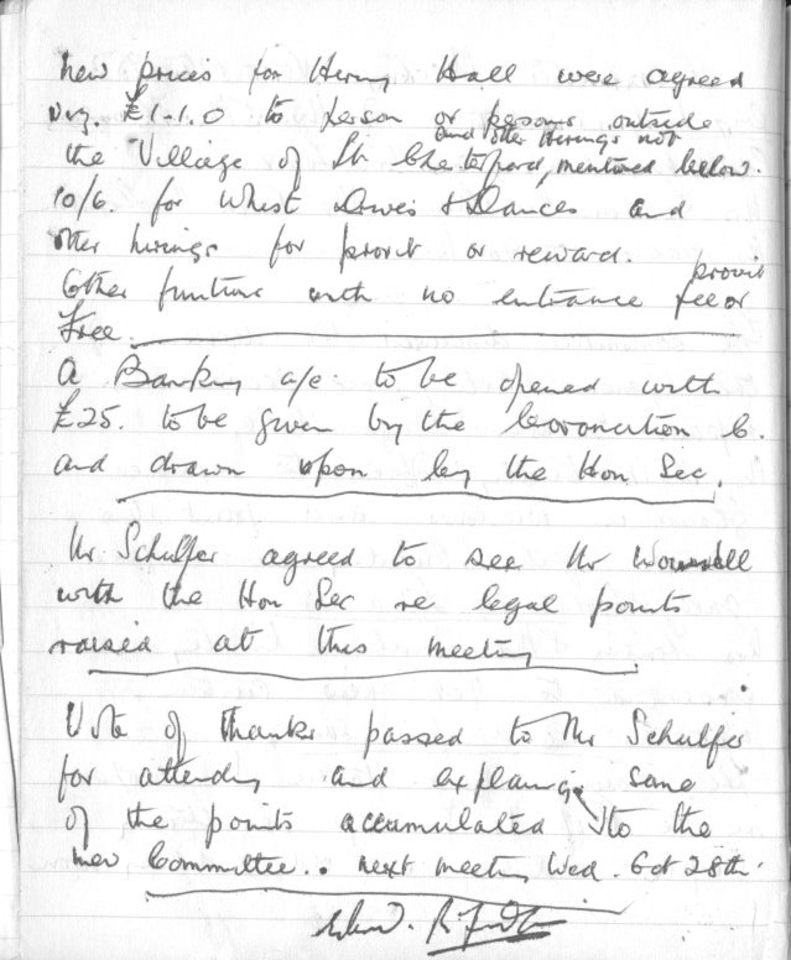 New prices for Hering Hall were agreed
viz. £1-1.0 to person or persons outside
and other Herings not
the Village of Gt Chesterford, mentioned below.
10/6. for Whist Drives & Dances and
other hirings for provit or reward.
provit
Other functions with no entrance fee or
Free.
A Banking a/c. to be opened with
£25. to be given by the Coronation C.
and drawn upon by the Hon Sec.
Mr Schulfer agreed to see Mr
with the Hon Sec re legal points
raised at this meeting
Vote of thanks passed to Mr Schulfer
for attending and explaing some
of the points accumulated to the
new Committee.. next meeting Wed. Oct 28th.